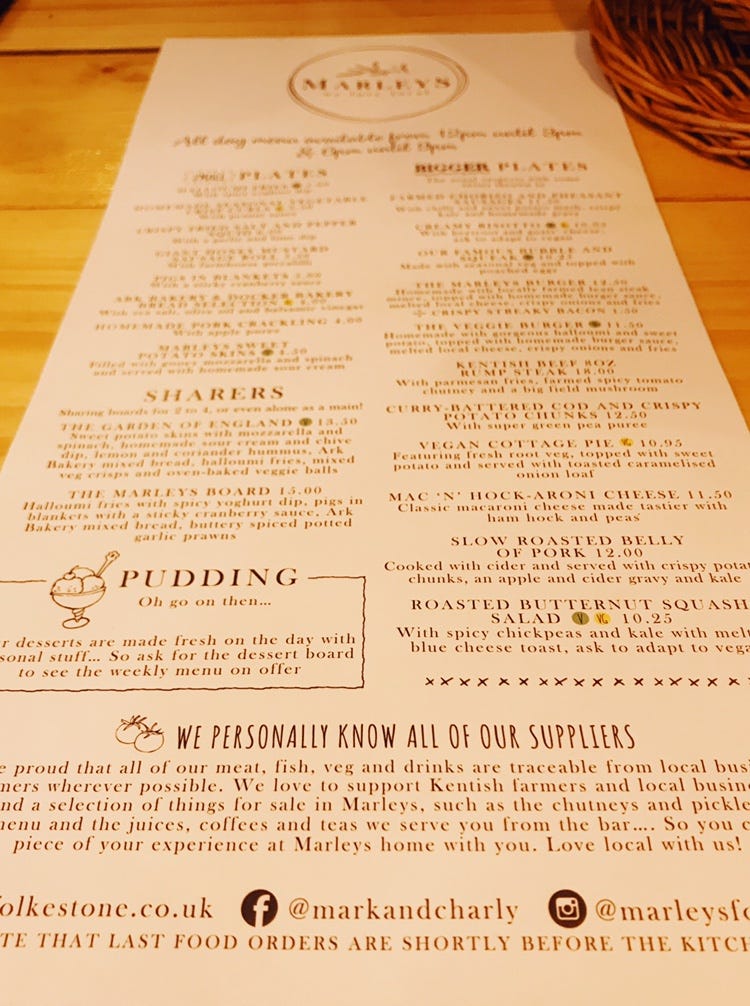 MARLEYS
PLATES
CRISPY FRIED SALT AND PEPPER
With a garlic and lime dip
PIGS IN BLANKETS
With a sticky cranberry sauce
ARK BAKERY & DOCKER BAKERY
BREAD SELECTION
With sea salt, olive oil and balsamic vinegar
HOMEMADE PORK CRACKLING 4.00
With apple puree
MARLEYS SWEET
POTATO SKINS V 4.50
Filled with gooey mozzarella and spinach
and served with homemade sour cream
SHARERS
Sharing boards for 2 to 4, or even alone as a main!
THE GARDEN OF ENGLAND V 13.50
Sweet potato skins with mozzarella and
spinach, homemade sour cream and chive
dip, lemon and coriander hummus, Ark
Bakery mixed bread, halloumi fries, mixed
veg crisps and oven-baked veggie balls
THE MARLEYS BOARD 15.00
Halloumi fries with spicy yoghurt dip, pigs in
blankets with a sticky cranberry sauce, Ark
Bakery mixed bread, buttery spiced potted
garlic prawns
PUDDING
Oh go on then...
r desserts are made fresh on the day with
sonal stuff... So ask for the dessert board
to see the weekly menu on offer
BIGGER PLATES
CREAMY RISOTTO
ask to adapt to vegan
OUR FAMOUS BUBBLE AND
SQUEAK V 10.25
Made with seasonal veg and topped with
poached eggs
THE MARLEYS BURGER 12.50
Homemade using locally farmed lean steak
mince, topped with homemade burger sauce,
melted local cheese, crispy onions and fries
+ CRISPY STREAKY BACON 1.50
THE VEGGIE BURGER V 11.50
Homemade with gorgeous halloumi and sweet
potato, topped with homemade burger sauce,
melted local cheese, crispy onions and fries
KENTISH BEEF 8OZ
RUMP STEAK 18.00
With parmesan fries, farmed spicy tomato
chutney and a big field mushroom
CURRY-BATTERED COD AND CRISPY
POTATO CHUNKS 12.50
With super green pea puree
VEGAN COTTAGE PIE VG 10.95
Featuring fresh root veg, topped with sweet
potato and served with toasted caramelised
onion loaf
MAC 'N' HOCK-ARONI CHEESE 11.50
Classic macaroni cheese made tastier with
ham hock and peas
SLOW ROASTED BELLY
OF PORK 12.00
Cooked with cider and served with crispy pota
chunks, an apple and cider gravy and kale
ROASTED BUTTERNUT SQUASH
SALAD V VG 10.25
With spicy chickpeas and kale with melt
blue cheese toast, ask to adapt to vega
WE PERSONALLY KNOW ALL OF OUR SUPPLIERS
e proud that all of our meat, fish, veg and drinks are traceable from local busi
mers wherever possible. We love to support Kentish farmers and local busine
nd a selection of things for sale in Marleys, such as the chutneys and pickle
menu and the juices, coffees and teas we serve you from the bar.... So you c
piece of your experience at Marleys home with you. Love local with us!
olkestone.co.uk @markandcharly @marleysfo
TE THAT LAST FOOD ORDERS ARE SHORTLY BEFORE THE KITCH